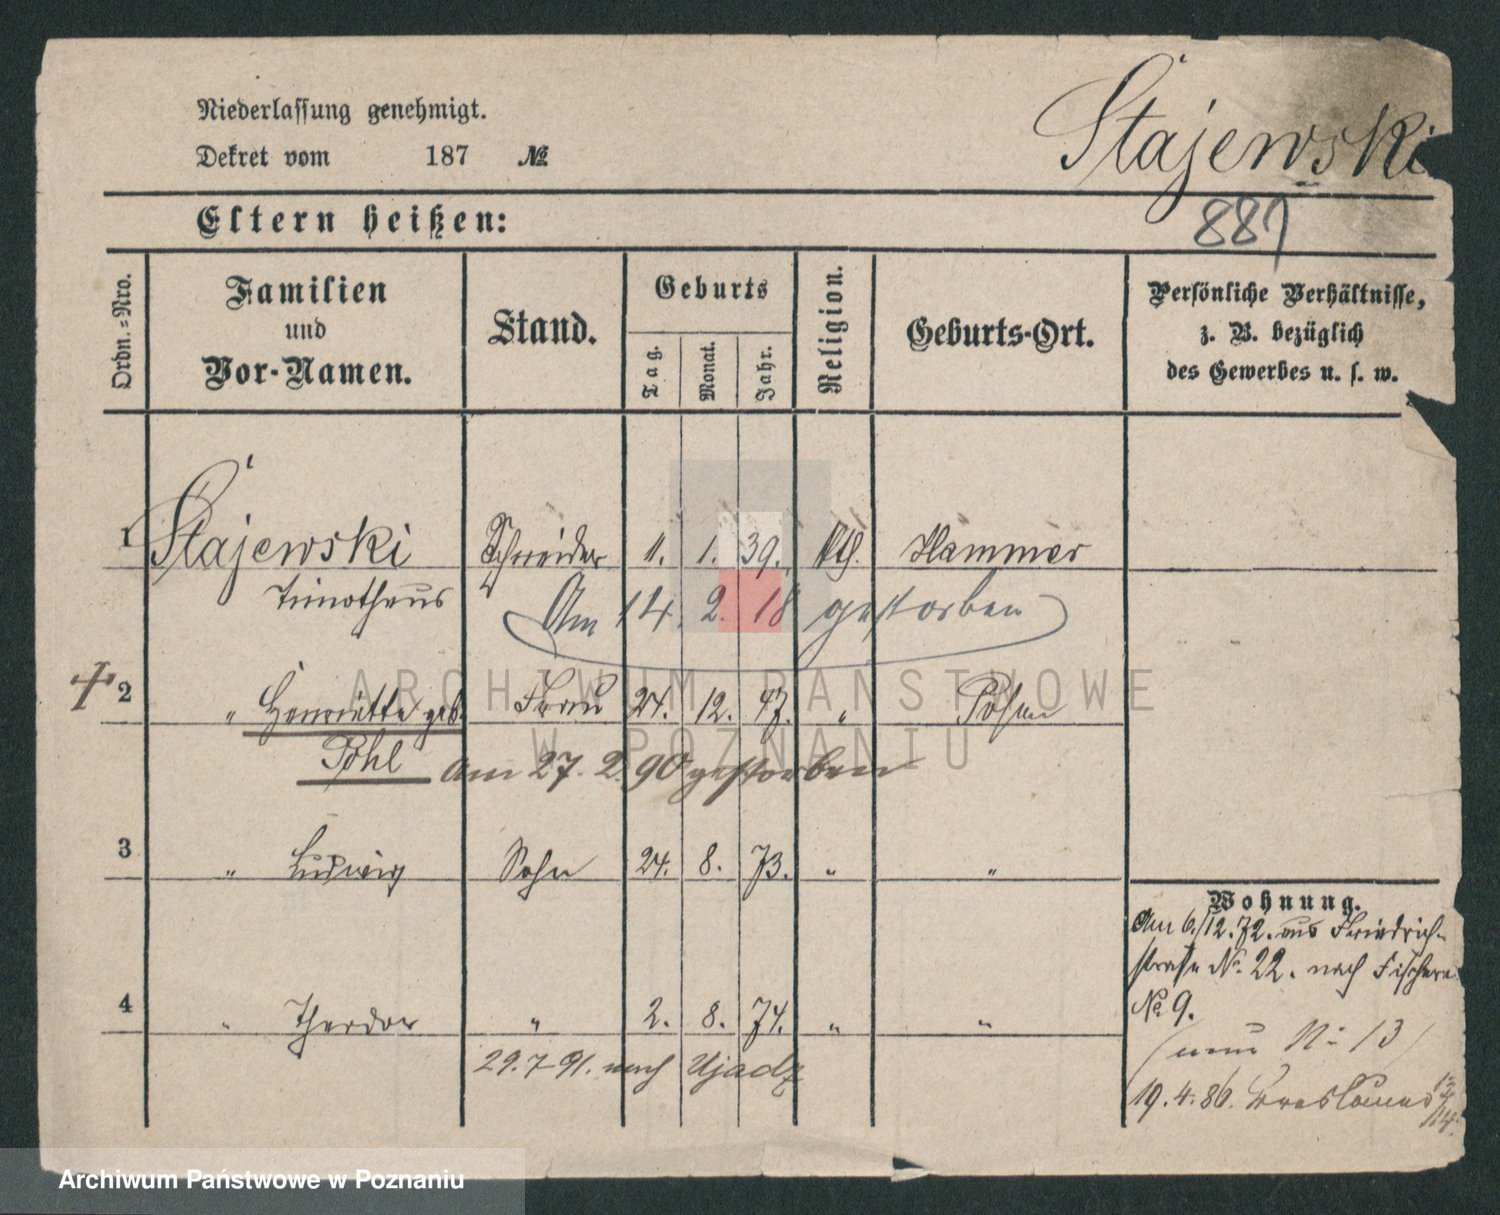 Niederlassung genehmigt.
Dekret vom 187 №
Stajewski
887
Eltern heißen:
Ordn.-Nro.
Familien
und
Vor-Namen.
Stand.
Geburts
Tag.
Monat.
Jahr.
Religion.
Geburts-Ort.
Persönliche Verhältnisse,
z. B. bezüglich
des Gewerbes u. s. w.
1 Stajewski Schneider 11. 1. 39. Kth. Hammer
Timotheus
Am 14. 2. 18 gestorben
2 " Henriette geb. Frau 24. 12. 47. " Posen
Pohl am 27. 2. 90 gestorben
3 " Ludwig Sohn 24. 8. 73. " "
4 " Theodor " 2. 8. 74. " "
29.7.91. nach Ujadz
Wohnung.
Am 6./12.72. aus Friedrich-
straße No. 22. nach Fischerei
No 9.
(neue N: 13)
19.4.86. Breslauer 13/14.
ARCHIWUM PAŃSTWOWE
W POZNANIU
Archiwum Państwowe w Poznaniu